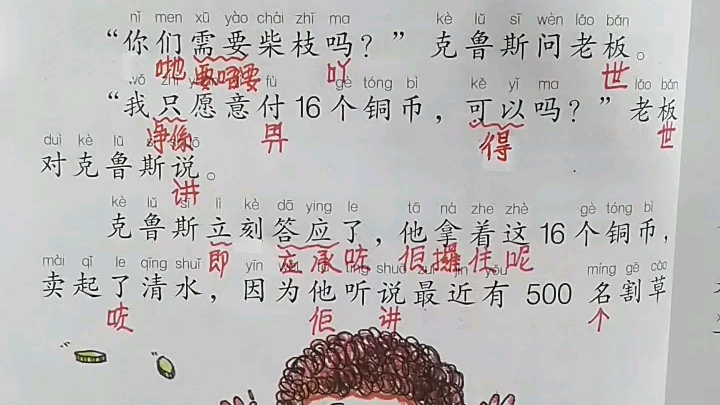 nǐ men xū yào chái zhī ma kè lǔ sī wèn lǎo bǎn
“你们需要柴枝吗？”克鲁斯问老板。
哋 要唔要 吖 世
fù gè tóng bì kě yǐ ma lǎo bǎn
“我只愿意付16个铜币，可以吗？”老板
净係 畀 得 世
duì kè lǔ
对克鲁斯说。
讲
kè lǔ sī lì kè dā ying le tā ná zhe zhè gè tóng bì
克鲁斯立刻答应了，他拿着这16个铜币，
即 应承咗 佢攞住呢
mài qǐ le qīng shuǐ yīn míng gē cǎo
卖起了清水，因为他听说最近有500名割草
咗 佢 讲 个